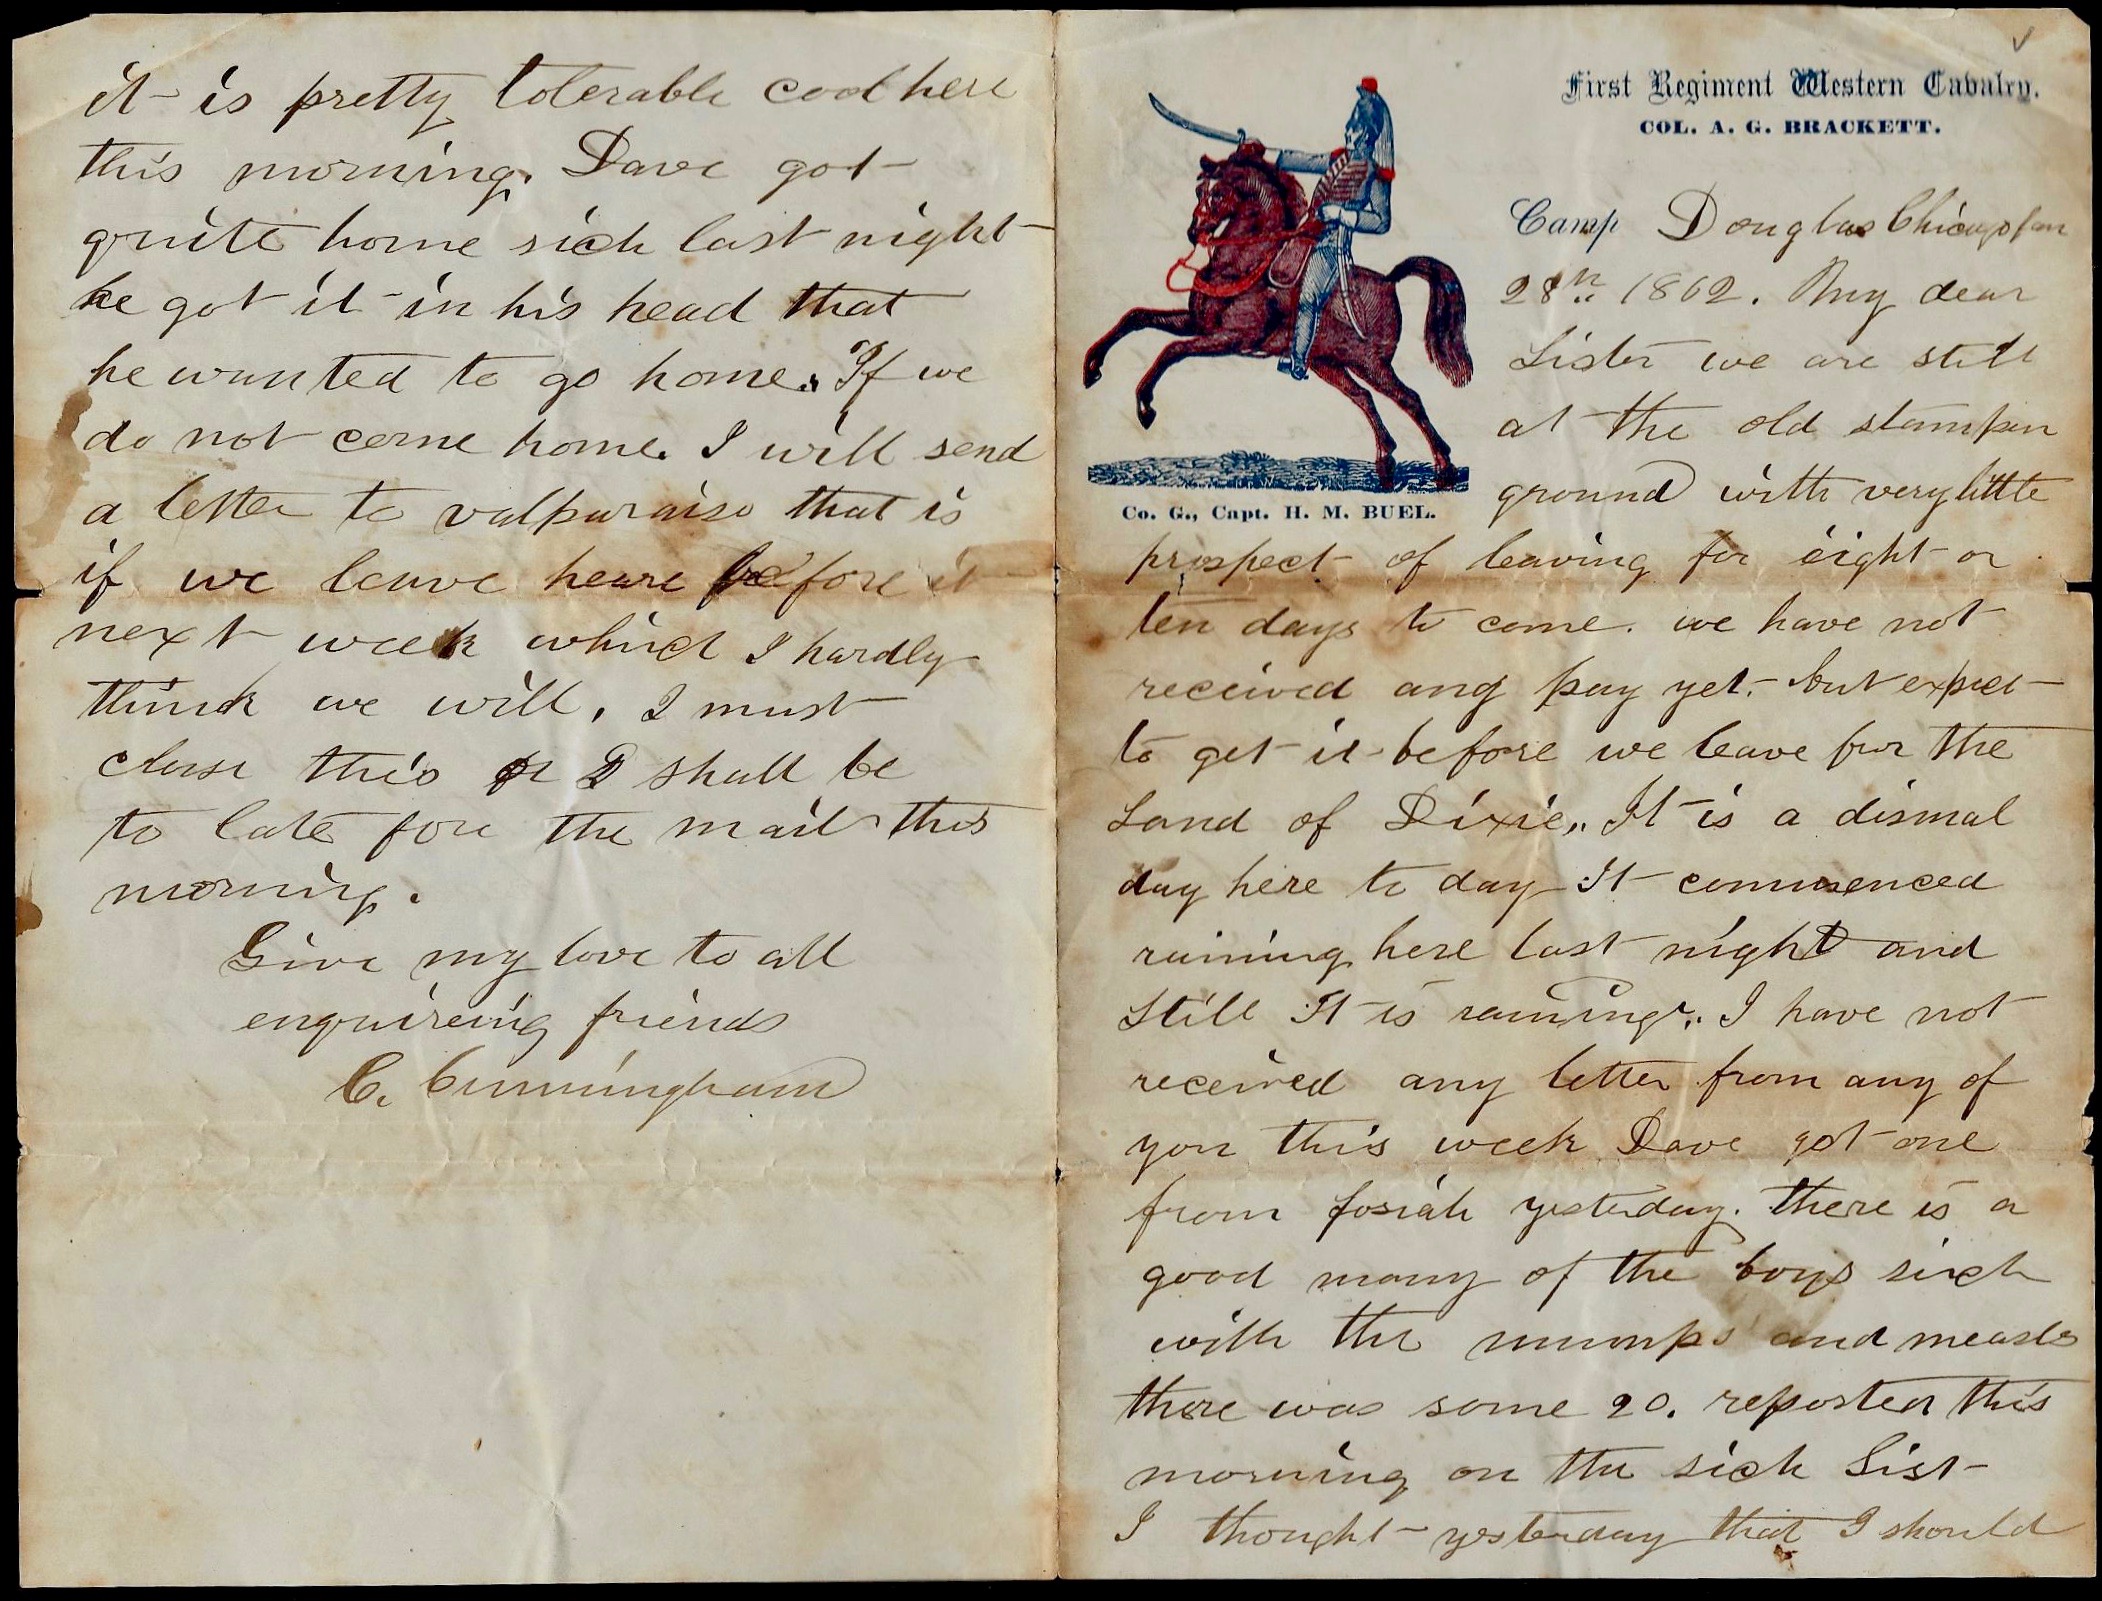 First Regiment Western Cavalry.
COL. A. G. BRACKETT.
Camp Douglas Chicago Jan
28th 1862. My dear
Sister we are still
at the old stampin
ground with very little
Co. G., Capt. H. M. BUEL.
prospect of leaving for eight or
ten days to come. we have not
received any pay yet. but expect
to get it before we leave fur the
Land of Dixie,, It is a dismal
day here to day It commenced
raining here last night and
still It is raining,. I have not
received any letter from any of
you this week Dave got one
from Josiah yesterday. there is a
good many of the boys sick
with the mumps and measls
there was some 20. reported this
morning on the sick List
I thought yesterday that I should
it is pretty tolerable cool here
this morning. Dave got
quite home sick last night
he got it in his head that
he wanted to go home. If we
do not come home. I will send
a letter to valparaiso that is
if we leave heare before it
next week which I hardly
think we will. I must
close this or I shall be
to late fore the mail this
morning.
Give my love to all
enquireing friends
C. Cunningham